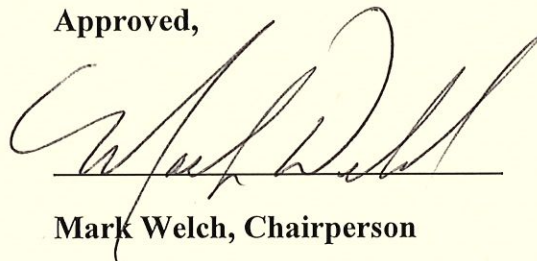 Approved,
Mark Welch
Mark Welch, Chairperson